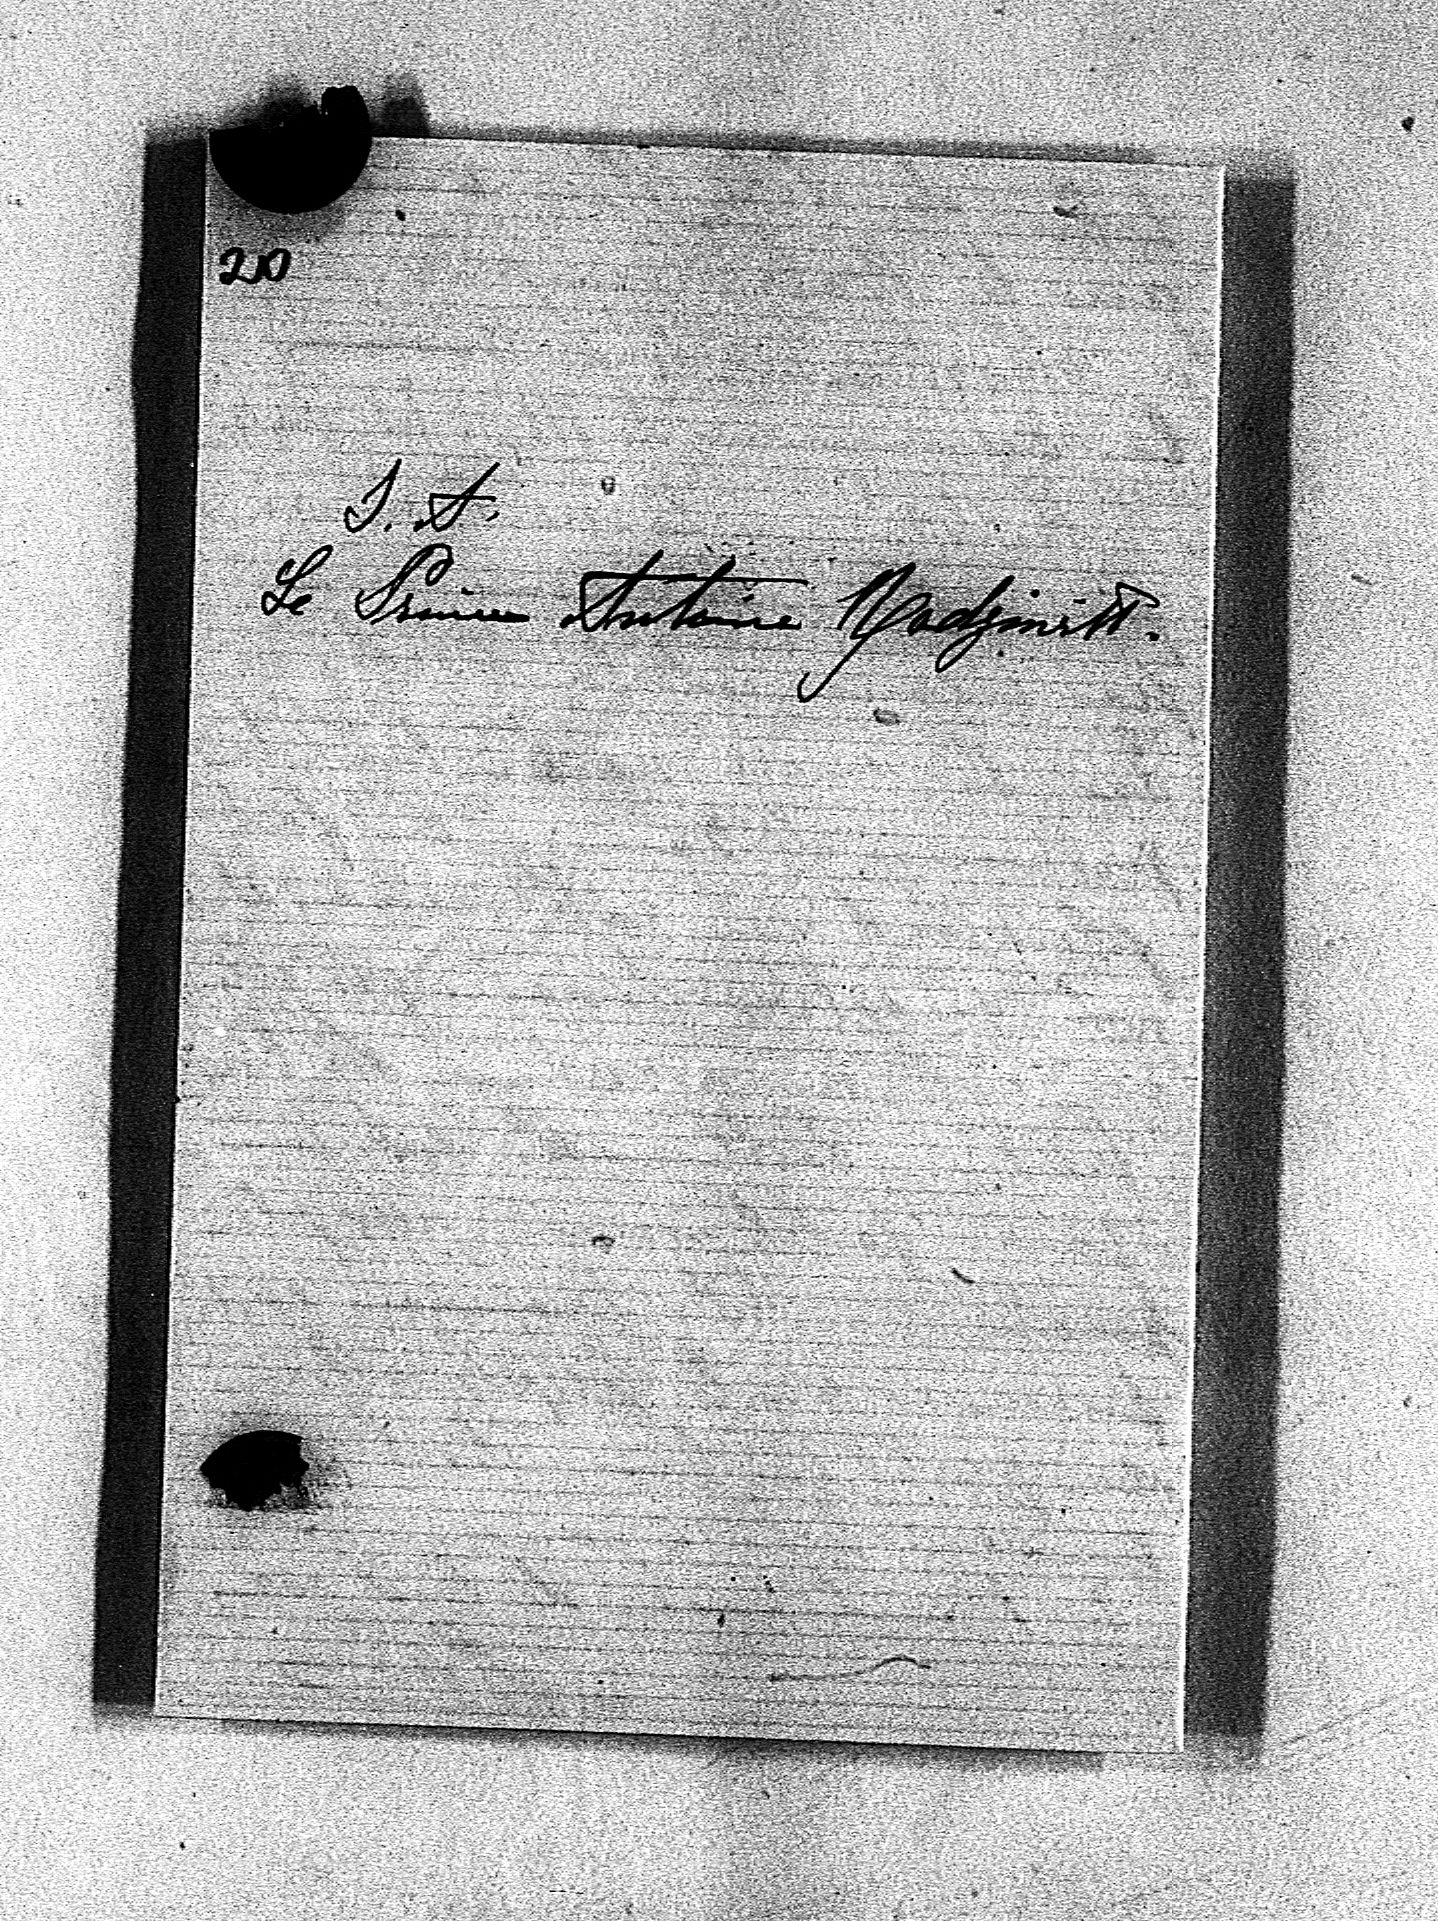 210
S. A.
Le Prince Antoine Radziwill.